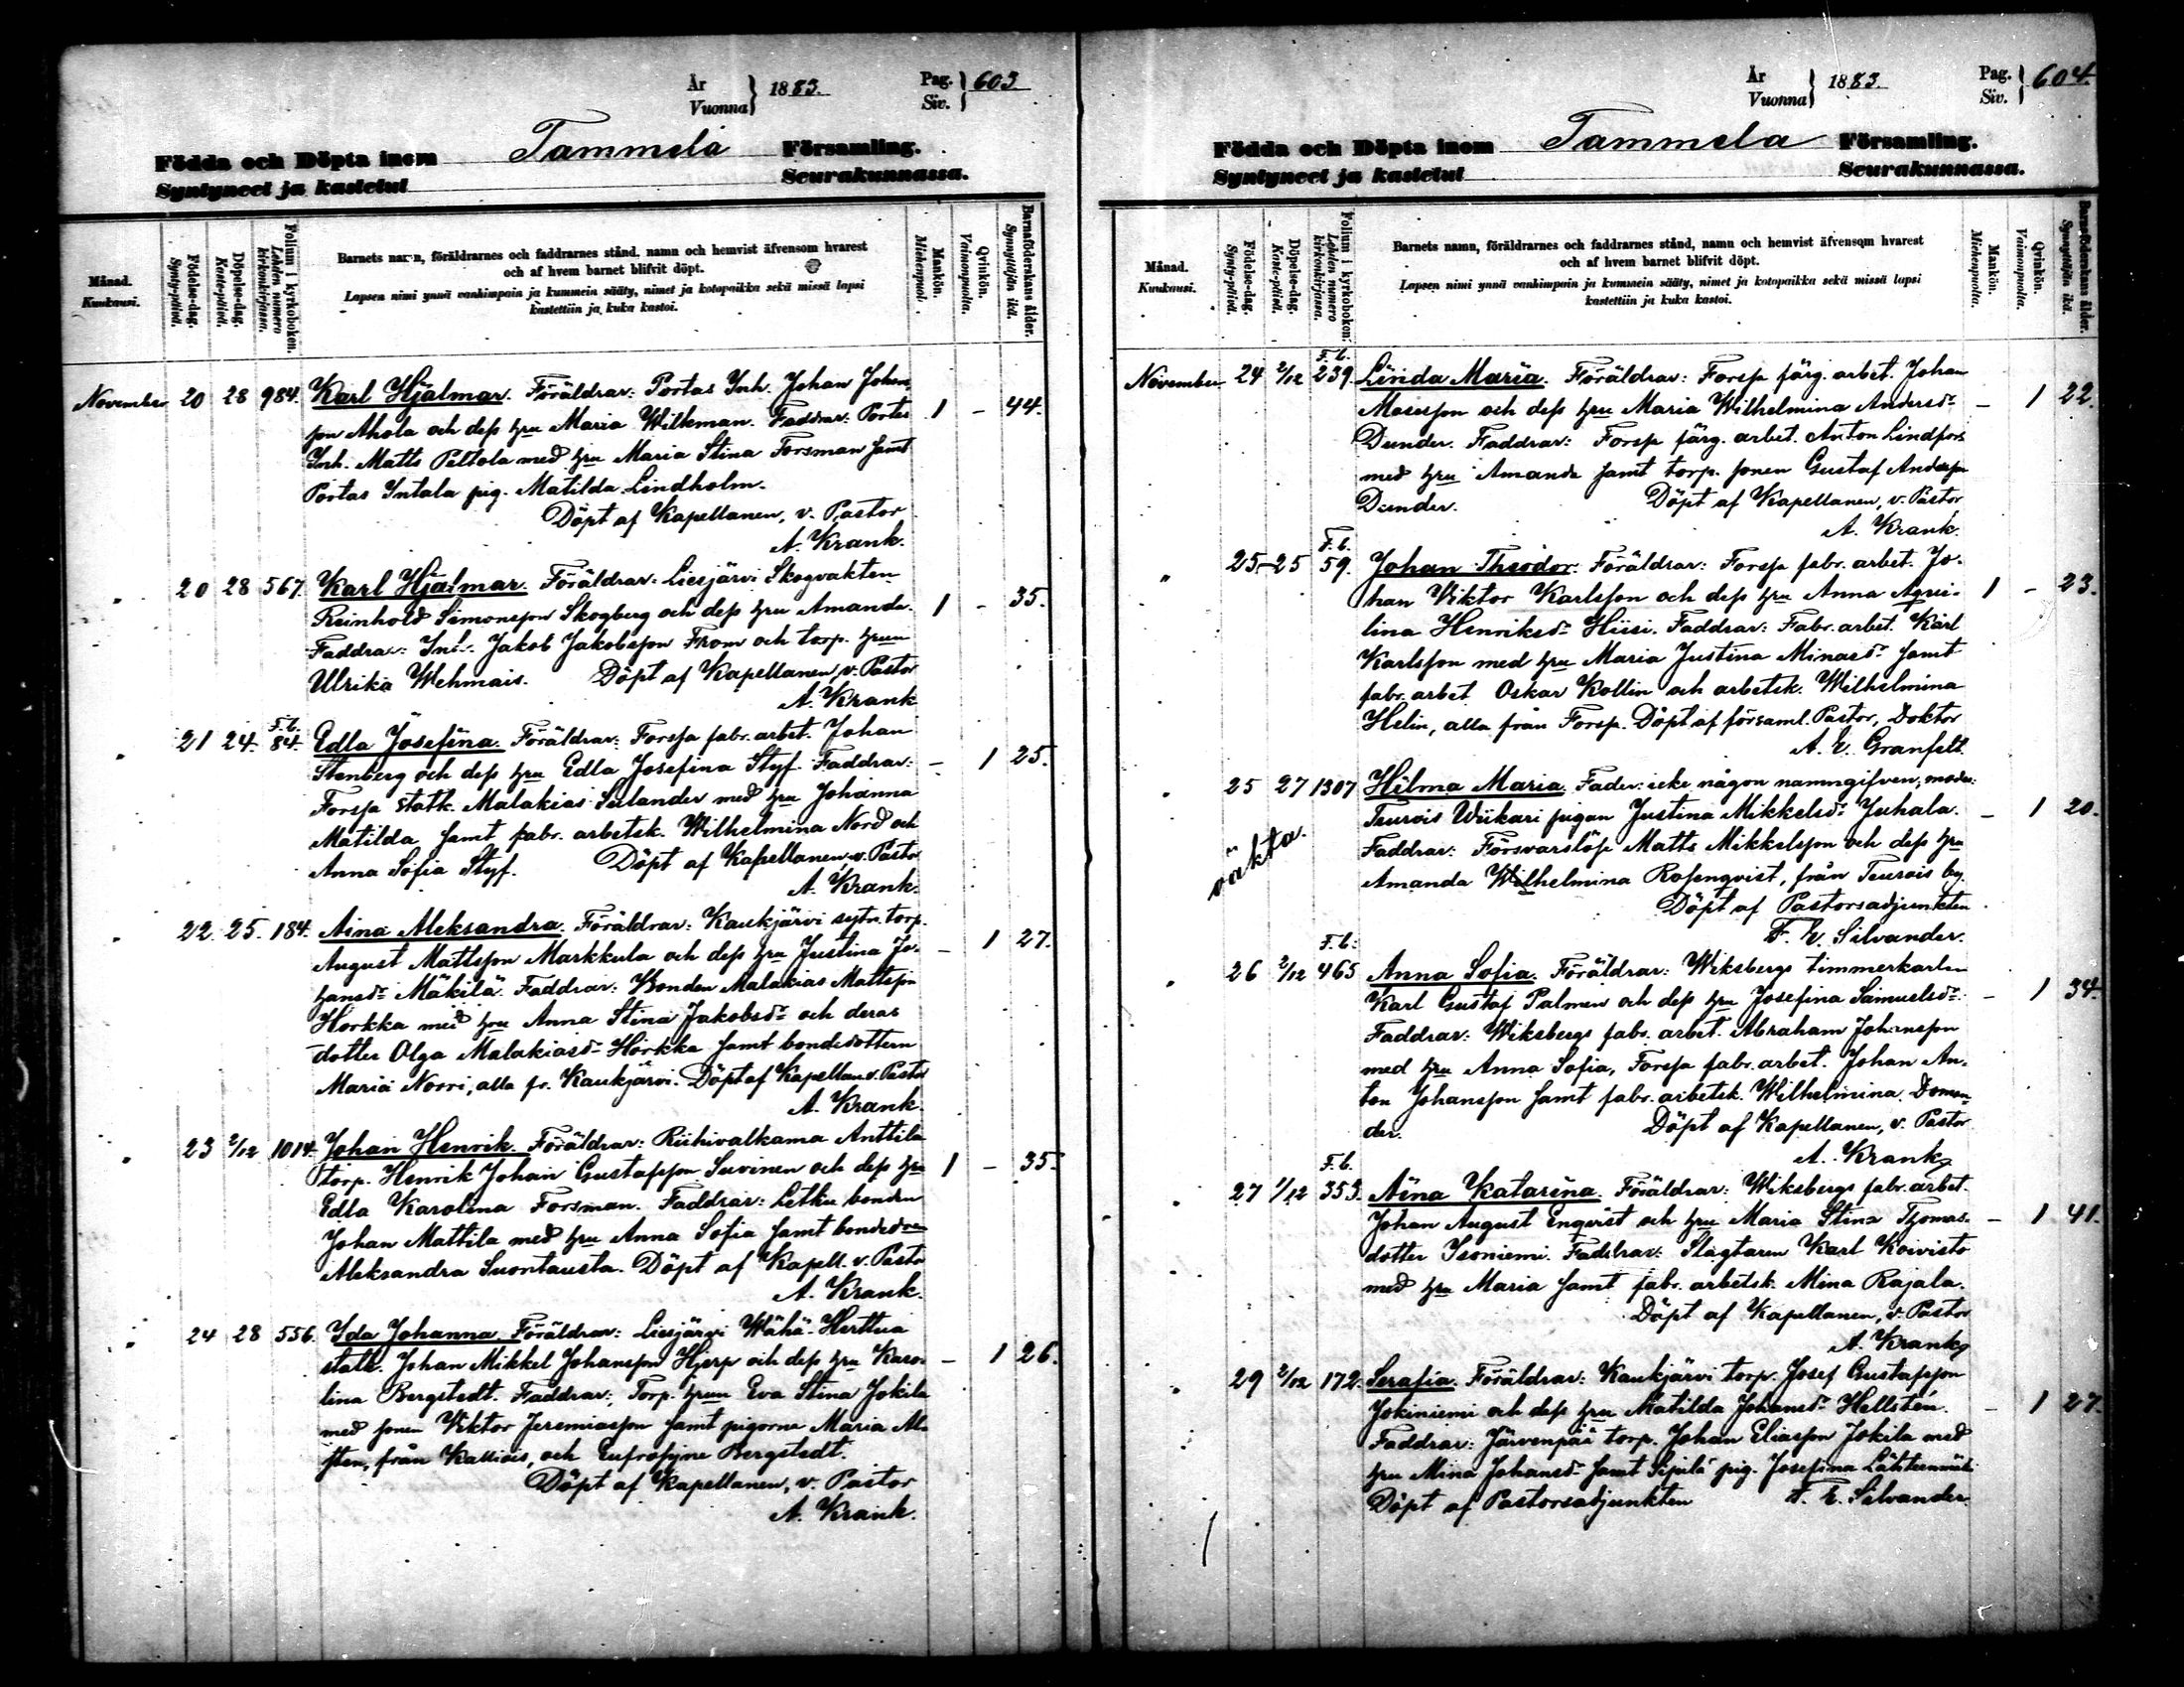 År
Vuonna } 1883.
Pag.
Siv. } 603
Födda och Döpta inom Tammela Församling.
Syntyneet ja kastetut Seurakunnassa.
Månad.
Kuukausi.
Födelse-dag.
Synty-päivä.
Döpelse-dag.
Kaste-päivä.
Folium i kyrkoboken.
Lehden numero kirkonkirjassa.
Barnets namn, föräldrarnes och faddrarnes stånd, namn och hemvist äfvensom hvarest
och af hvem barnet blifvit döpt.
Lapsen nimi ynnä vanhimpain ja kummein sääty, nimet ja kotopaikka sekä missä lapsi
kastettiin ja kuka kastoi.
Mankön.
Miehenpuol.
Qvinkön.
Vaimonpuolta.
Barnaföderskans ålder.
Synnyttäjän ikä.
November 20 28 984. Karl Hjalmar. Föräldrar: Portas Inh. Johan Johans
son Ahola och dess hru Maria Wilkman. Faddrar: Portas 1 - 44.
Inh. Matts Peltola med hru Maria Stina Forsman samt
Portas Intala pig. Matilda Lindholm.
Döpt af Kapellanen, v. Pastor
A. Krank.
" 20 28 567. Karl Hjalmar. Föräldrar: Liesjärvi Skogvakten
Reinhold Simonsson Skogberg och dess hru Amanda. 1 - 35.
Faddrar: Inh. Jakob Jakobsson From och torp. hrun
Ulrika Wehmais. Döpt af Kapellanen, v. Pastor
A. Krank
" 21 24. F.b. 84. Edla Josefina. Föräldrar: Forssa fabr. arbet. Johan
Stenberg och dess hru Edla Josefina Styf. Faddrar: - 1 25.
Forssa statk. Malakias Sulander med hru Johanna
Matilda samt fabr. arbetsk. Wilhelmina Nord och
Anna Sofia Styf. Döpt af Kapellanen, v. Pastor
A. Krank.
" 22. 25. 184. Aina Aleksandra. Föräldrar: Kaukjärvi sytn. torp.
August Mattsson Markkula och dess hru Justina Jo- - 1 27.
hansdr Mäkilä. Faddrar: Bonden Malakias Mattsson
Horkka med hru Anna Stina Jakobsdr och deras
dotter Olga Malakiasdr Horkka samt bondedottern
Maria Norri, alla fr. Kaukjärvi. Döpt af Kapellan. v. Pastor
A. Krank.
" 23 2/12 1014. Johan Henrik. Föräldrar: Riihivalkama Anttila
torp. Henrik Johan Gustafsson Suvinen och dess hru 1 - 35.
Edla Karolina Forsman. Faddrar: Letku bonden
Johan Mattila med hru Anna Sofia samt bonded
Aleksandra Suontausta. Döpt af Kapell. v. Pastor
A. Krank.
" 24 28 556. Ida Johanna. Föräldrar: Liesjärvi Wähä-Herttua
statk. Johan Mikkel Johansson Hjerp och dess hru Karo- - 1 26.
lina Bergstedt. Faddrar: Torp. hrun Eva Stina Jokila
med sonen Viktor Jeremiasson samt pigorna Maria Al-
sten, från Kallioi, och Eufrosyne Bergstedt.
Döpt af Kapellanen, v. Pastor
A. Krank.
År
Vuonna } 1883.
Pag.
Siv. } 604.
Födda och Döpta inom Tammela Församling.
Syntyneet ja kastetut Seurakunnassa.
Månad.
Kuukausi.
Födelse-dag.
Synty-päivä.
Döpelse-dag.
Kaste-päivä.
Folium i kyrkoboken.
Lehden numero kirkonkirjassa.
Barnets namn, föräldrarnes och faddrarnes stånd, namn och hemvist äfvensom hvarest
och af hvem barnet blifvit döpt.
Lapsen nimi ynnä vanhimpain ja kummein sääty, nimet ja kotopaikka sekä missä lapsi
kastettiin ja kuka kastoi.
Mankön.
Miehenpuolta.
Qvinkön.
Vaimonpuolta.
Barnsföderskans ålder.
Synnyttäjän ikä.
November 24 2/12 F.b. 239. Linda Maria. Föräldrar: Forssa färg. arbet. Johan
Mosesson och dess hru Maria Wilhelmina Andersdr - 1 22.
Dunder. Faddrar: Forssa färg. arbet. Anton Lindfors
med hru Amanda samt torp. sonen Gustaf Andersson
Dunder. Döpt af Kapellanen, v. Pastor
A. Krank.
" 25 25 F.b. 59. Johan Theodor. Föräldrar: Forssa fabr. arbet. Jo-
han Viktor Karlsson och dess hru Anna Agvi- 1 - 23.
lina Henriksdr Hiisi. Faddrar: Fabr. arbet. Karl
Karlsson med hru Maria Justina Minasdr samt
fabr. arbet Oskar Kollin och arbetsk. Wilhelmina
Helin, alla från Forssa. Döpt af församl. Pastor, Doktor
A. E. Granfelt.
" 25 27 1307 Hilma Maria. Fader: icke någon namngifven, moder:
Teurois Wiikari pigan Justina Mikkelsdr Juhala. - 1 20.
oäkta. Faddrar: Försvarslöse Matts Mikkelsson och dess hru
Amanda Wilhelmina Rosenqvist, från Teurois by.
Döpt af Pastorsadjunkten
F. E. Silvander.
" 26 2/12 F.b. 465 Anna Sofia. Föräldrar: Wiksbergs timmerkarlen
Karl Gustaf Palmen och dess hru Josefina Samuelsdr - 1 34.
Faddrar: Wiksbergs fabr. arbet. Abraham Johansson
med hru Anna Sofia, Forssa fabr. arbet. Johan An-
ton Johansson samt fabr. arbetsk. Wilhelmina Doman-
der. Döpt af Kapellanen, v. Pastor
A. Krank
" 27 1/12 F.b. 353. Aina Katarina. Föräldrar: Wiksbergs fabr. arbet.
Johan August Enqvist och hru Maria Stina Thomas- - 1 41.
dotter Isoniemi. Faddrar: Slagtaren Karl Koivisto
med hru Maria samt fabr. arbetsk. Mina Rajala.
Döpt af Kapellanen, v. Pastor
A. Krank
" 29 2/12 172. Serafia. Föräldrar: Kaukjärvi torp. Josef Gustafsson
Jokiniemi och dess hru Matilda Johansdr Hellstén. - 1 27.
Faddrar: Järvenpää torp. Johan Eliasson Jokila med
hru Mina Johansdr samt Sipilä pig. Josefina Lähteenmäki
Döpt af Pastorsadjunkten F. E. Silvander.